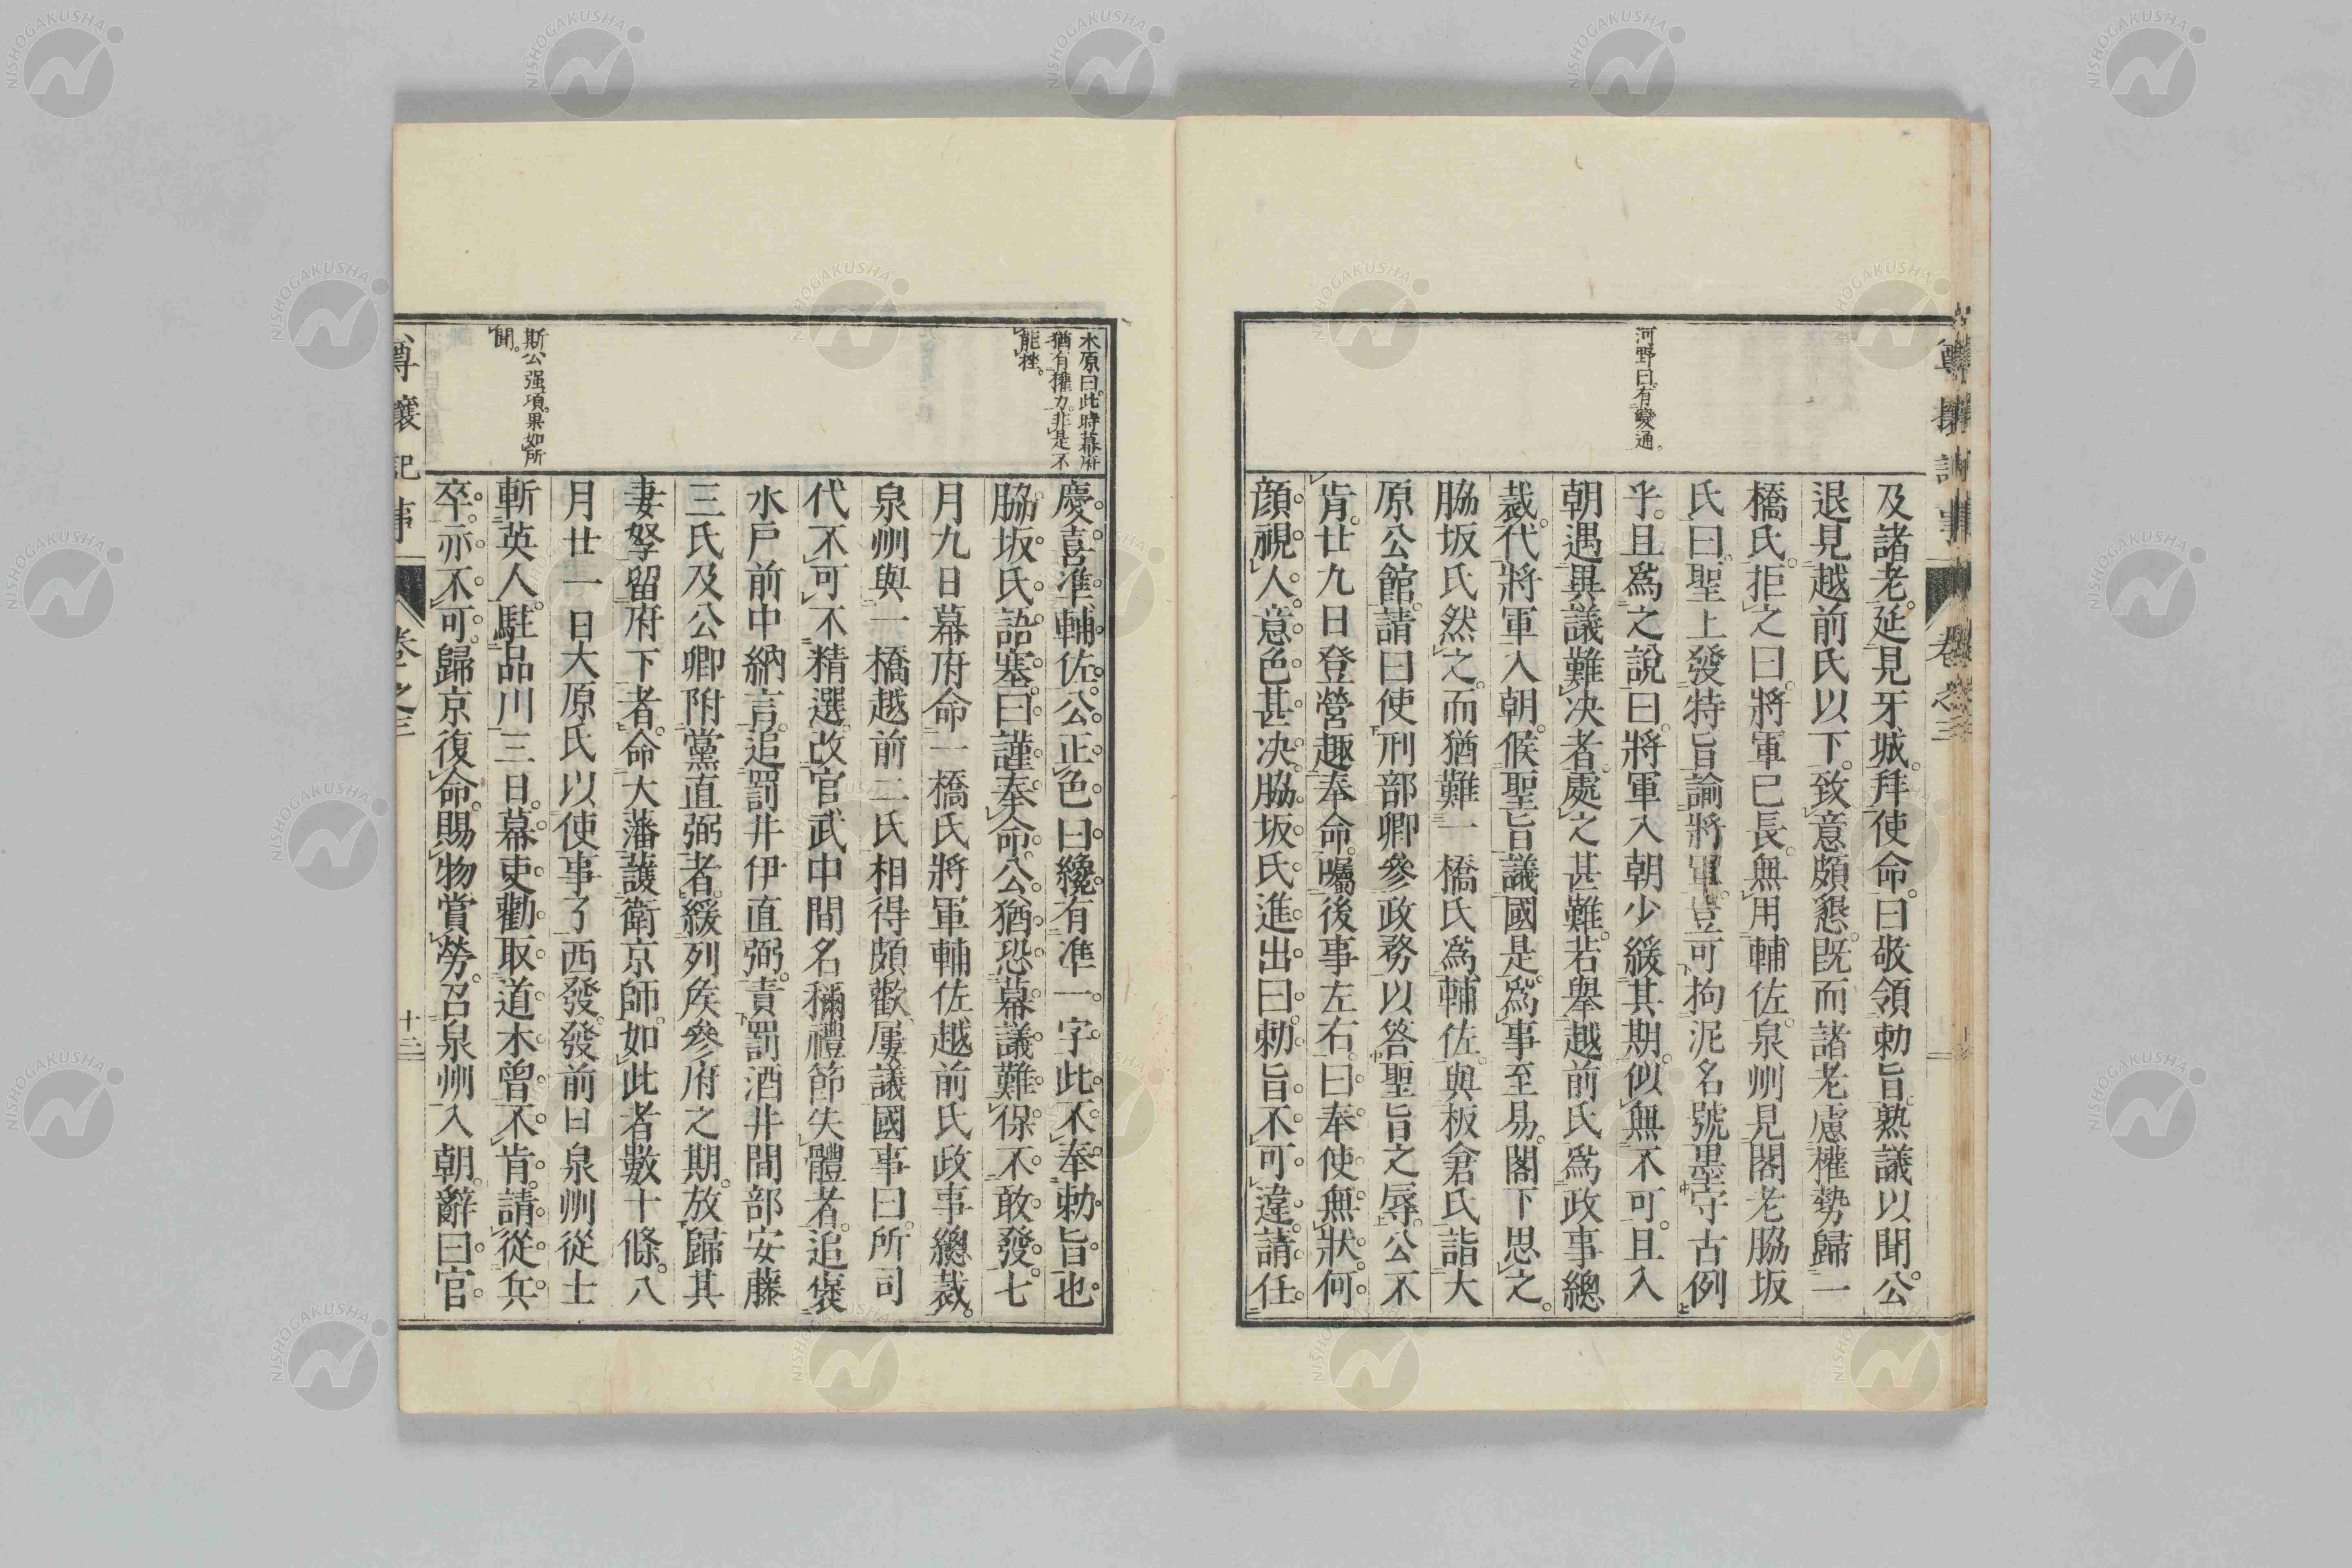 尊攘記事
卷之三
河野曰有變通。
及諸老。延見牙城。拜使命。曰敬領勅旨。熟議以聞。公
退見越前氏以下。致意頗懇。既而諸老慮權勢歸一
橋氏。拒之曰。將軍已長。無用輔佐。泉州見閣老脇坂
氏曰。聖上發特旨諭將軍。豈可拘泥名號墨守古例
乎。且爲之說曰。將軍入朝少緩其期。似無不可。且入
朝遇異議難决者。處之甚難。若舉越前氏爲政事總
裁。代將軍入朝。候聖旨議國是。爲事至易。閣下思之。
脇坂氏然之。而猶難一橋氏爲輔佐。與板倉氏詣大
原公館。請曰使刑部卿參政務。以答聖旨之辱。公不
肯。廿九日登營趣奉命。囑後事左右。曰奉使無狀。何
顏視人。意色甚决。脇坂氏進出曰。勅旨不可違。請任
木原曰。此時幕府
猶有權力。非是不
能挫。
斯公强項。果如所
聞。
慶喜準輔佐。公正色曰。纔有准一字。此不奉勅旨也。
脇坂氏語塞曰。謹奉命。公猶恐幕議難保。不敢發。七
月九日幕府命一橋氏將軍輔佐越前氏政事總裁。
泉州與一橋越前二氏相得頗歡。屢議國事曰。所司
代不可不精選。改官武中間名稱禮節失體者。追褒
水戶前中納言。追罰井伊直弼。責罰酒井間部安藤
三氏及公卿附黨直弼者。緩列矦參府之期。放歸其
妻孥留府下者。命大藩護衛京師。如此者數十條。八
月廿一日大原氏以使事了西發。發前日泉州從士
斬英人。駐品川三日。幕吏勸取道木曾。不肯。請從兵
卒。亦不可。歸京復命。賜物賞勞。召泉州入朝。辭曰。官
尊攘記事
卷之三
十二